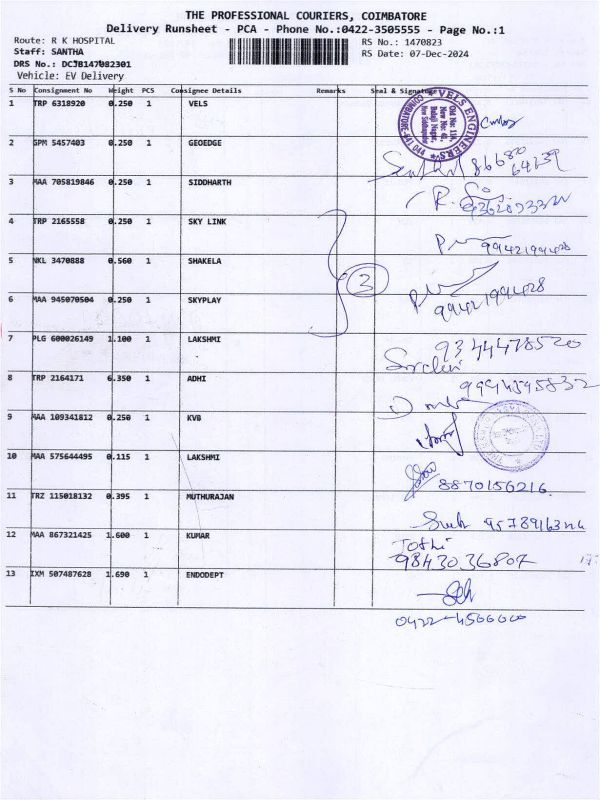 THE PROFESSIONAL COURIERS, COIMBATORE
Delivery Runsheet - PCA - Phone No.:0422-3505555 - Page No.:1
Route: R K HOSPITAL RS No.: 1470823
Staff: SANTHA RS Date: 07-Dec-2024
DRS No.: DCJB147082301
Vehicle: EV Delivery
S No Consignment No Weight PCS Consignee Details Remarks Seal & Signature
1 TRP 6318920 0.250 1 VELS
VELS ENGINEERS
Old No: 11A,
New No: 41,
Balaji Nagar,
2 GPM 5457403 0.250 1 GEOEDGE
86680
64139
3 MAA 705819846 0.250 1 SIDDHARTH
4 TRP 2165558 0.250 1 SKY LINK
9942199428
5 NKL 3470888 0.560 1 SHAKELA
3
6 MAA 945070504 0.250 1 SKYPLAY
9942199428
7 PLG 600026149 1.100 1 LAKSHMI
9344478520
8 TRP 2164171 6.350 1 ADHI
9994595832
9 MAA 109341812 0.250 1 KVB
10 MAA 575644495 0.115 1 LAKSHMI
8870156216
11 TRZ 115018132 0.395 1 MUTHURAJAN
12 MAA 867321425 1.600 1 KUMAR
Jothi
9843036807
13 IXM 507487628 1.690 1 ENDODEPT
0422-4500000